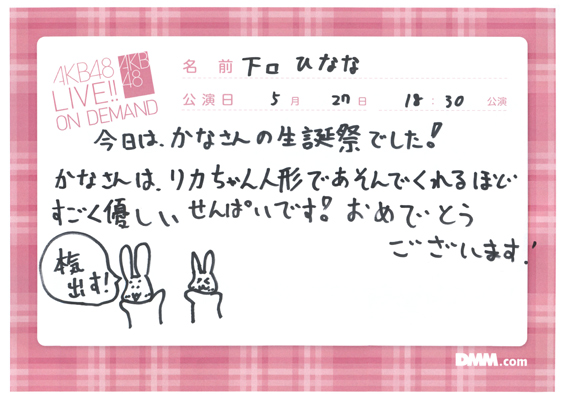 AKB48
LIVE!!
ON DEMAND
AKB
48
名前 下口 ひなな
公演日 5月 27日 18:30 公演
今日は、かなさんの生誕祭でした!
かなさんは、リカちゃん人形であそんでくれるほど
すごく優しいせんぱいです! おめでとう
ございます!
出す!
DMM.com